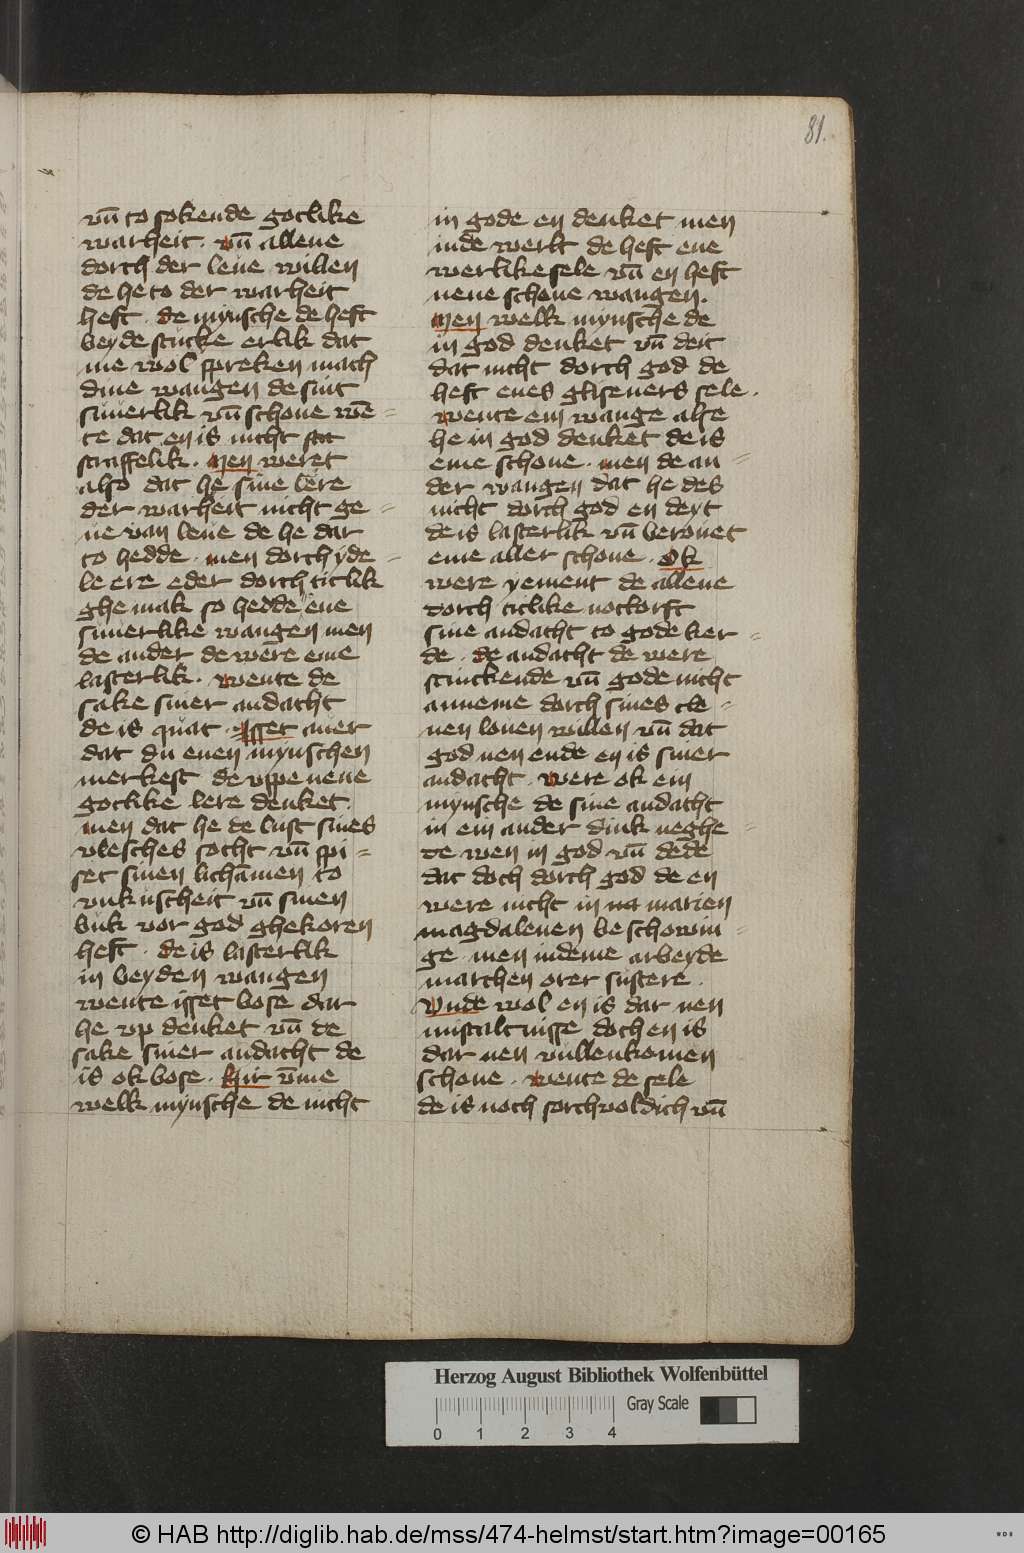 81.
vn̄ to sokende gotlike
warheit. vn̄ allene
dorch der leue willen
de he to der warheit
heft. de mynsche de heft
beyde stucke erlik dat
me wol spreken mach
dine wangen de sint
suuerlik vn̄ schone wē=
te dat en is nicht stat
straffelik. Men weret
also dat he sine lere
der warheit nicht ge=
ue van leue de he dar
to hedde. men dorch yde=
le ere eder dorch titlik
ghemak so hedde ene
suuerlike wangen men
de ander de were eme
lasterlik. wente de
sake siner andacht
de is quat. Isset auer
dat du enen mynschen
merkest de vppe nene
gotlike lere denket.
men dat he de lust sines
vlesches socht vn̄ spi=
set sinen lichāmen to
vnkuscheit vn̄ sinen
buk vor god ghekoren
heft. de is lasterlik
in beyden wangen
wente isset bose dar
he vp denket vn̄ de
sake siner andacht de
is ok bose. Hir v̄me
welk mynsche de nicht
in gode en denket men
in de werlt de heft ene
werlike sele vn̄ en heft
nene schone wangen.
Men welk mynsche de
in god denket vn̄ deit
dat nicht dorch god de
heft enes gliseners sele.
wente ein wange alse
he in god denket de is
eme schone. men de an=
der wangen dat he des
nicht dorch god en deyt
de is lasterlik vn̄ berouet
eme aller schone. Ok
were yement de allene
dorch titlike nottorft
sine andacht to gode ker=
de. de andacht de were
stinckende vn̄ gode nicht
anneme dorch sines cle=
nen louen willen vn̄ dat
god nen ende en is siner
andacht. were ok ein
mynsche de sine andacht
in ein ander dink neghe=
de wen in god vn̄ dede
dat doch dorch god de en
were nicht in na marien
magdalenen beschowin=
ge. men in deme arbeyde
marthen orer sustere.
Vnde wol en is dar nen
mistaltnisse doch en is
dar nen vullenkomen
schone. wente de sele
de is noch sorchuoldich vn̄
Herzog August Bibliothek Wolfenbüttel
Gray Scale
0 1 2 3 4
© HAB http://diglib.hab.de/mss/474-helmst/start.htm?image=00165